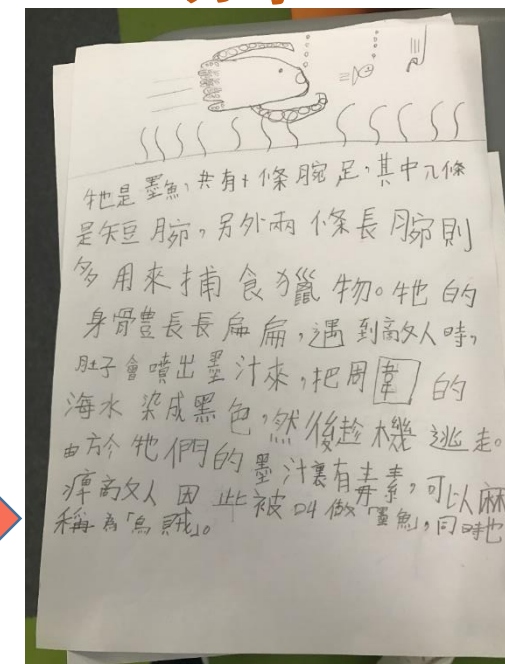 牠是墨魚,共有十條腕足,其中八條
是短腕,另外兩條長腕則
多用來捕食獵物。牠的
身體長長扁扁,遇到敵人時,
肚子會噴出墨汁來,把周圍的
海水染成黑色,然後趁機逃走。
由於牠們的墨汁裏有毒素,可以麻
痺敵人因此被叫做「墨魚」,同時也
稱為「烏賊」。